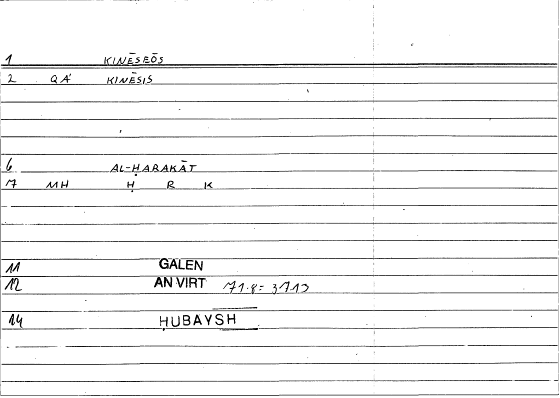 1 KINĒSEŌS
2 QÁ KINĒSIS
6 AL-ḤARAKĀT
7 MH Ḥ R K
11 GALEN
12 AN VIRT 71.8 = 3710
14 ḤUBAYSH